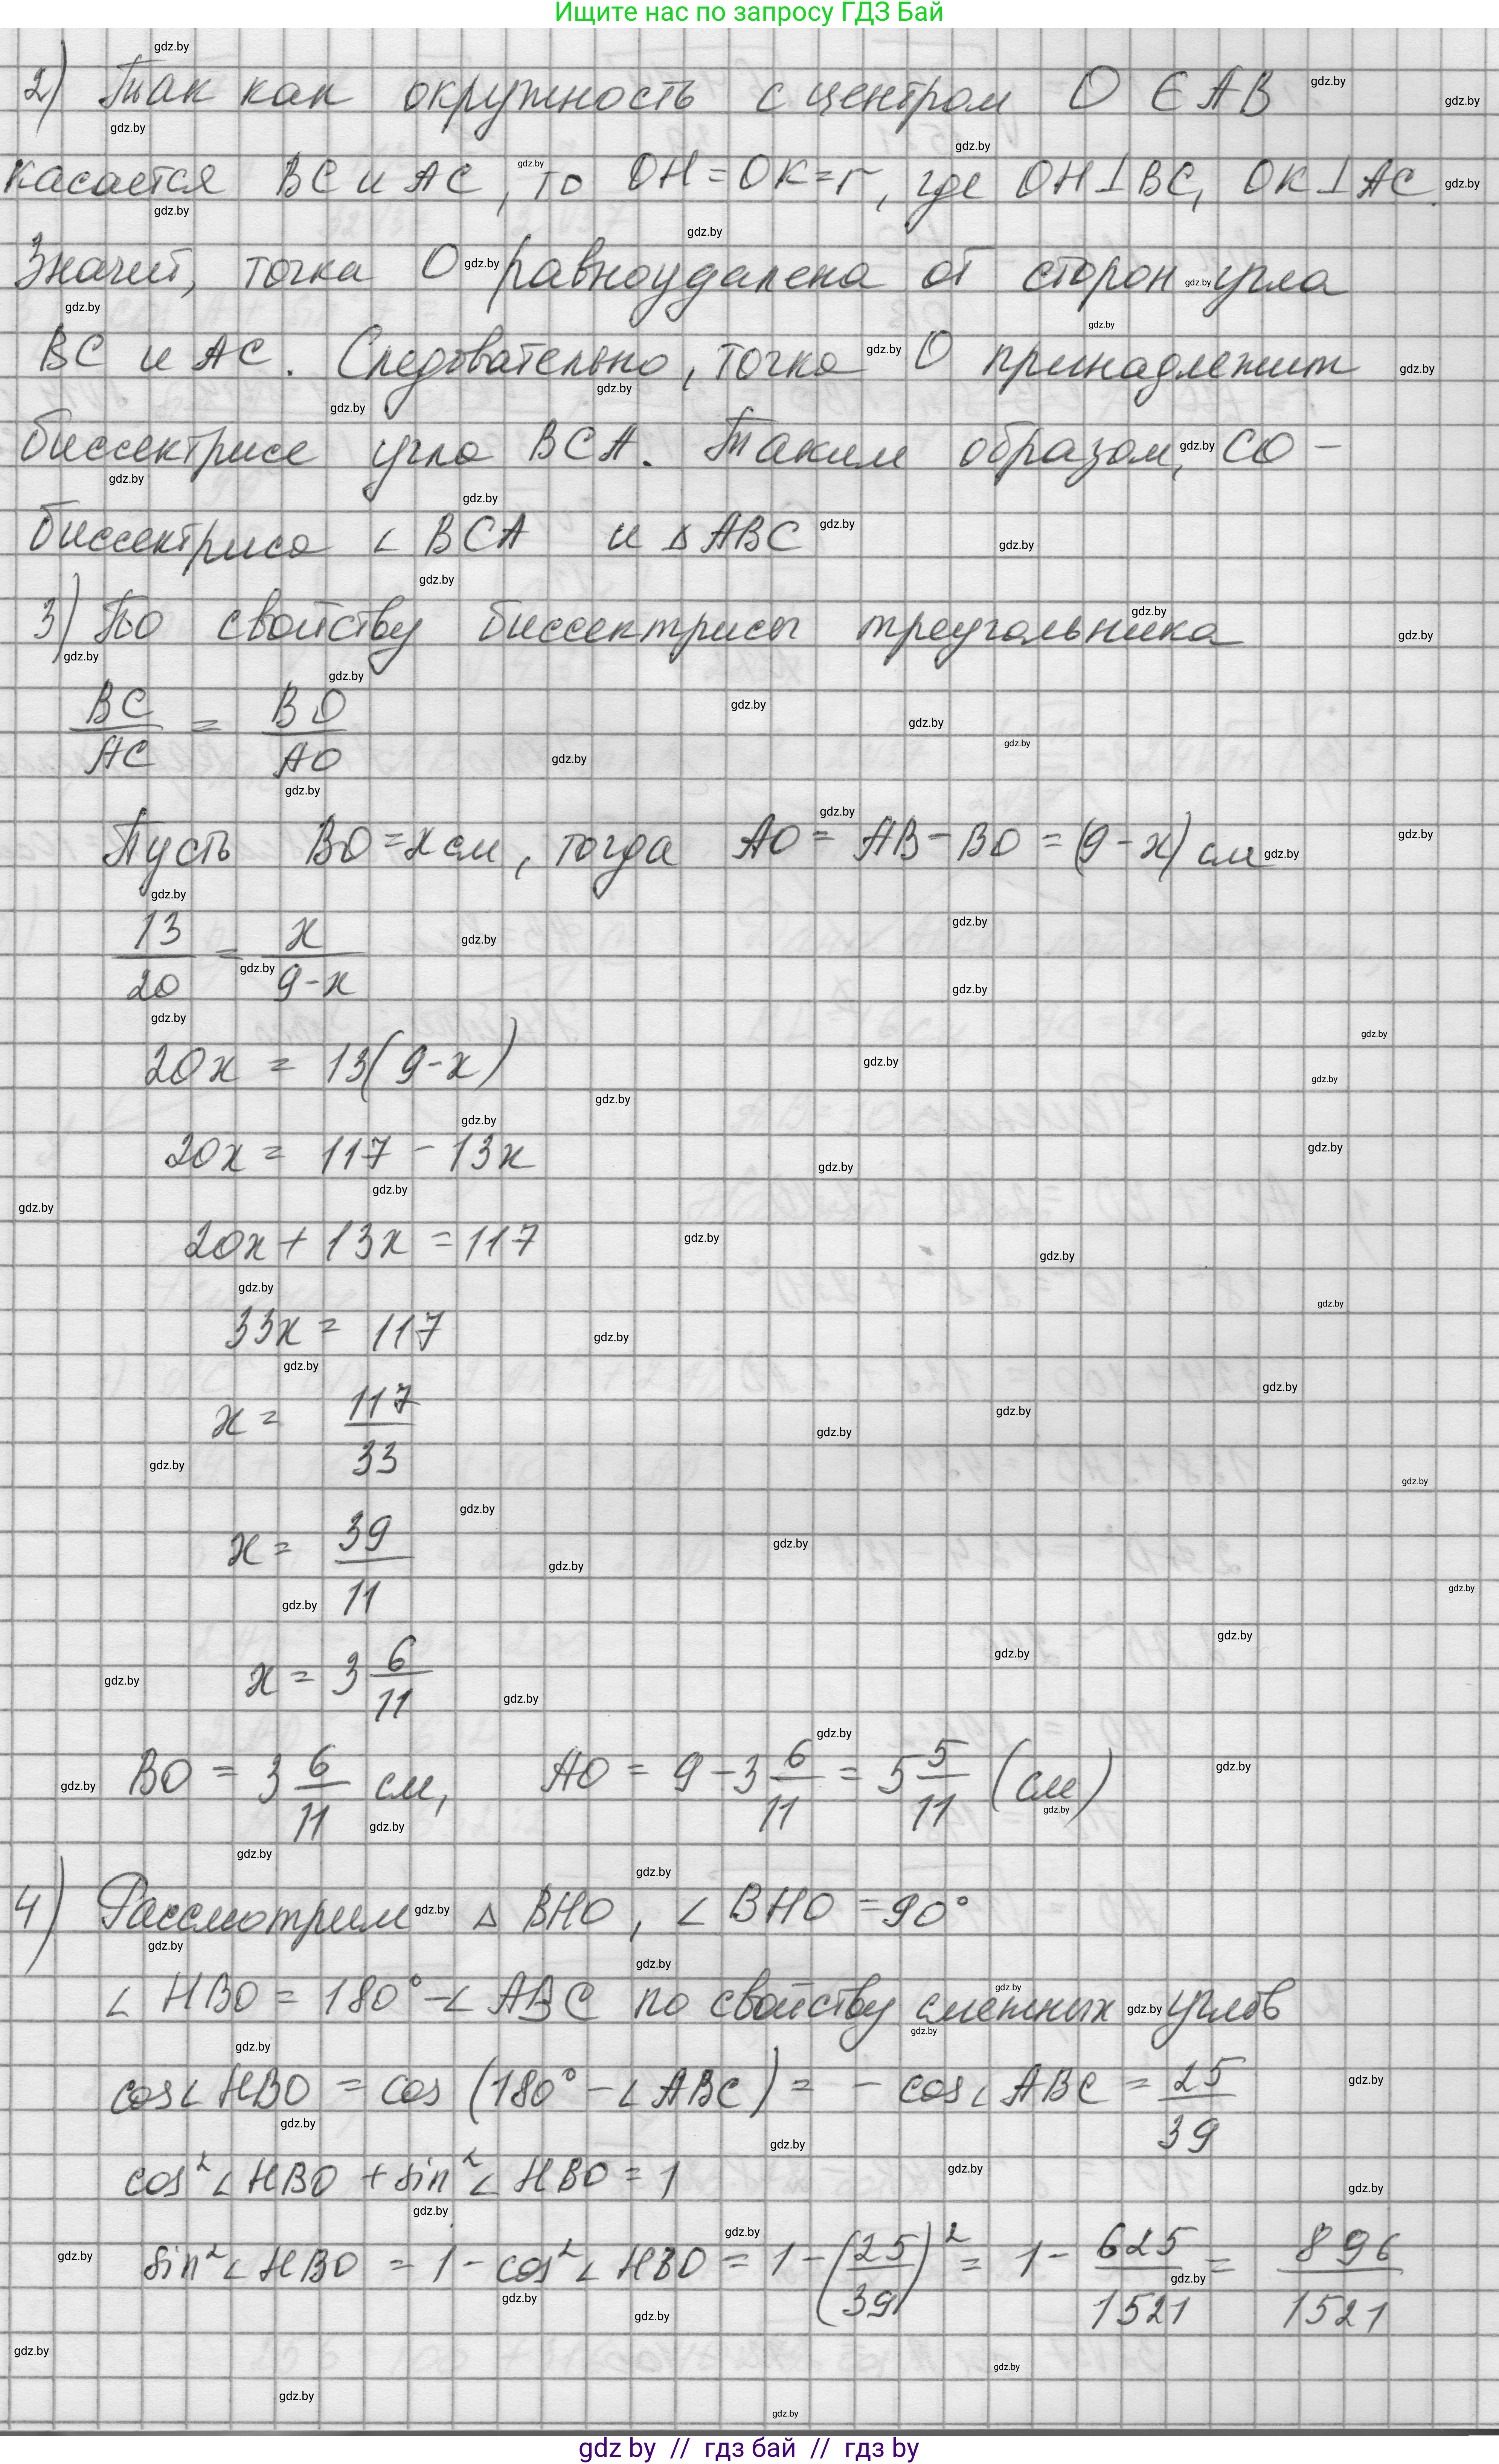 Ищите нас по запросу ГДЗ Бай
2) Так как окружность с центром O ∈ AB
касается BC и AC, то OH = OK = r, где OH ⊥ BC, OK ⊥ AC.
Значит, точка O равноудалена от сторон угла
BC и AC. Следовательно, точка O принадлежит
биссектрисе угла BCA. Таким образом, CO –
биссектриса ∠ BCA и △ ABC
3) По свойству биссектрисы треугольника
BC/AC = BO/AO
Пусть BO = x см, тогда AO = AB – BO = (9 – x) см
13/20 = x/(9-x)
20x = 13(9-x)
20x = 117 – 13x
20x + 13x = 117
33x = 117
x = 117/33
x = 39/11
x = 3 6/11
BO = 3 6/11 см, AO = 9 – 3 6/11 = 5 5/11 (см)
4) Рассмотрим △ BHO, ∠ BHO = 90°
∠ HBO = 180° – ∠ ABC по свойству смежных углов
cos ∠ HBO = cos (180° – ∠ ABC) = – cos ∠ ABC = 25/39
cos² ∠ HBO + sin² ∠ HBO = 1
sin² ∠ HBO = 1 – cos² ∠ HBO = 1 – (25/39)² = 1 – 625/1521 = 896/1521
gdz by // гдз бай // гдз by